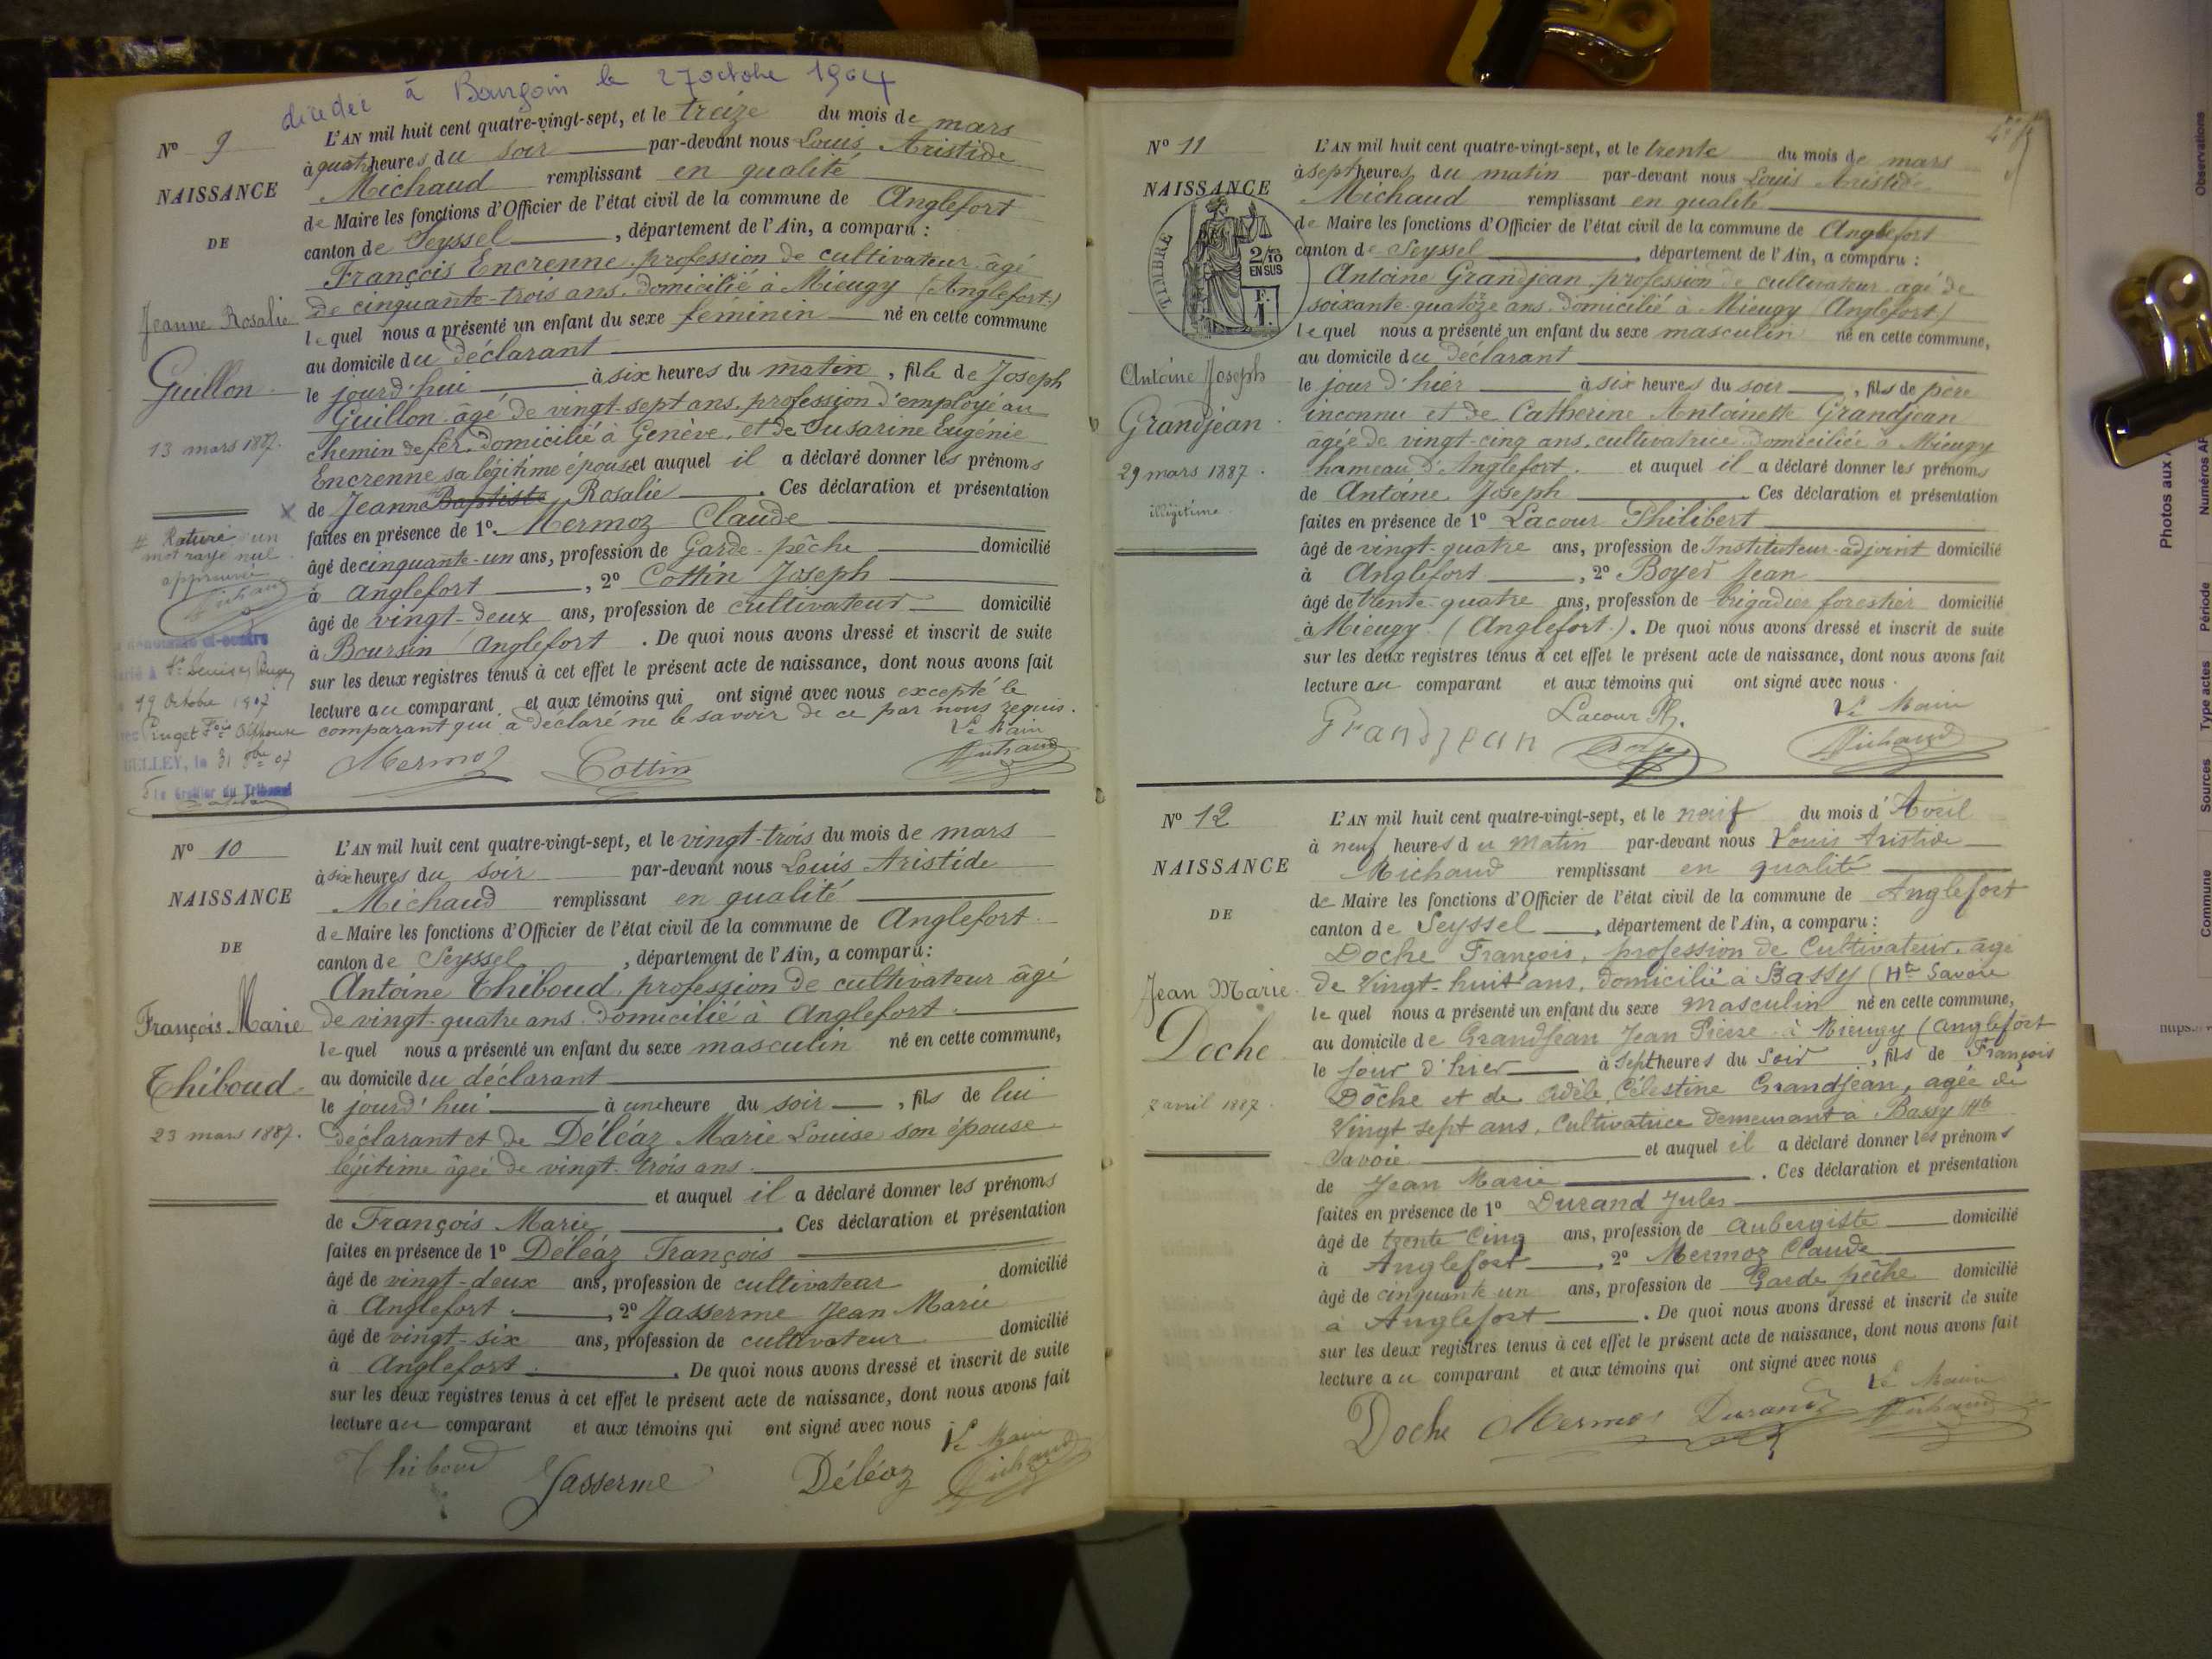 décédée à Bourgoin le 27 octobre 1964
N° 9
NAISSANCE
DE
Jeanne Rosalie
Guillon
13 mars 1887.
# Raturé un
mot rayé nul
approuvé
Michaud
ci-contre
à St Denis en Bugey
19 Octobre 1907
Pinget Fois Alphonse
BELLEY, le 31 8bre 07
Le Greffier du Tribunal
L'AN mil huit cent quatre-vingt-sept, et le treize du mois de mars
à quatre heures du soir par-devant nous Louis Aristide
Michaud remplissant en qualité
de Maire les fonctions d'Officier de l'état civil de la commune de Anglefort
canton de Seyssel, département de l'Ain, a comparu :
François Encrenne, profession de cultivateur âgé
de cinquante-trois ans, domicilié à Mieugy (Anglefort)
lequel nous a présenté un enfant du sexe féminin né en cette commune
au domicile du déclarant
le jourd'hui à six heures du matin, fille de Joseph
Guillon âgé de vingt-sept ans, profession d'employé au
chemin de fer, domicilié à Genève, et de Susarine Eugénie
Encrenne sa légitime épouse et auquel il a déclaré donner les prénoms
de Jeanne # Baptiste Rosalie. Ces déclaration et présentation
faites en présence de 1° Mermoz Claude
âgé de cinquante-un ans, profession de Garde-pêche domicilié
à Anglefort, 2° Cottin Joseph
âgé de vingt-deux ans, profession de cultivateur domicilié
à Boursin Anglefort. De quoi nous avons dressé et inscrit de suite
sur les deux registres tenus à cet effet le présent acte de naissance, dont nous avons fait
lecture au comparant et aux témoins qui ont signé avec nous excepté le
comparant qui a déclaré ne le savoir de ce par nous requis.
Le Maire
Mermoz Cottin Michaud
N° 10
NAISSANCE
DE
François Marie
Thiboud
23 mars 1887.
L'AN mil huit cent quatre-vingt-sept, et le vingt-trois du mois de mars
à six heures du soir par-devant nous Louis Aristide
Michaud remplissant en qualité
de Maire les fonctions d'Officier de l'état civil de la commune de Anglefort
canton de Seyssel, département de l'Ain, a comparu:
Antoine Thiboud, profession de cultivateur âgé
de vingt-quatre ans domicilié à Anglefort.
lequel nous a présenté un enfant du sexe masculin né en cette commune,
au domicile du déclarant
le jourd'hui à une heure du soir, fils de lui
déclarant et de Déléaz Marie Louise son épouse
légitime âgée de vingt-trois ans
et auquel il a déclaré donner les prénoms
de François Marie. Ces déclaration et présentation
faites en présence de 1° Déléaz François
âgé de vingt-deux ans, profession de cultivateur domicilié
à Anglefort, 2° Jasserme Jean Marie
âgé de vingt-six ans, profession de cultivateur domicilié
à Anglefort. De quoi nous avons dressé et inscrit de suite
sur les deux registres tenus à cet effet le présent acte de naissance, dont nous avons fait
lecture au comparant et aux témoins qui ont signé avec nous
Le Maire
Thiboud Jasserme Déléaz Michaud
N° 11
NAISSANCE
TIMBRE
2/10
EN SUS
F.
1.
Antoine Joseph
Grandjean
29 mars 1887.
illégitime
L'AN mil huit cent quatre-vingt-sept, et le trente du mois de mars
à sept heures du matin par-devant nous Louis Aristide
Michaud remplissant en qualité
de Maire les fonctions d'Officier de l'état civil de la commune de Anglefort
canton de Seyssel, département de l'Ain, a comparu :
Antoine Grandjean, profession de cultivateur âgé de
soixante-quatorze ans, domicilié à Mieugy (Anglefort)
lequel nous a présenté un enfant du sexe masculin né en cette commune,
au domicile du déclarant
le jour d'hier à six heures du soir, fils de père
inconnu et de Catherine Antoinette Grandjean
âgée de vingt-cinq ans, cultivatrice domiciliée à Mieugy
hameau d'Anglefort. et auquel il a déclaré donner les prénoms
de Antoine Joseph. Ces déclaration et présentation
faites en présence de 1° Lacour Philibert
âgé de vingt-quatre ans, profession de Instituteur-adjoint domicilié
à Anglefort, 2° Boyer Jean
âgé de trente-quatre ans, profession de brigadier forestier domicilié
à Mieugy (Anglefort). De quoi nous avons dressé et inscrit de suite
sur les deux registres tenus à cet effet le présent acte de naissance, dont nous avons fait
lecture au comparant et aux témoins qui ont signé avec nous.
Le Maire
Grandjean Lacour Ph. Michaud
N° 12
NAISSANCE
DE
Jean Marie
Doche
7 avril 1887.
L'AN mil huit cent quatre-vingt-sept, et le neuf du mois d'Avril
à neuf heures du Matin par-devant nous Louis Aristide
Michaud remplissant en qualité
de Maire les fonctions d'Officier de l'état civil de la commune de Anglefort
canton de Seyssel, département de l'Ain, a comparu :
Doche François, profession de Cultivateur, âgé
de Vingt-huit ans, domicilié à Bassy (Hte Savoie
lequel nous a présenté un enfant du sexe Masculin né en cette commune,
au domicile de GrandJean Jean Pierre à Mieugy (Anglefort
le jour d'hier à Sept heures du Soir, fils de François
Doche et de Adèle Célestine Grandjean, agée de
Vingt sept ans, Cultivatrice demeurant à Bassy Hte
Savoie et auquel il a déclaré donner les prénoms
de Jean Marie. Ces déclaration et présentation
faites en présence de 1° Durand Jules
âgé de trente Cinq ans, profession de aubergiste domicilié
à Anglefort, 2° Mermoz Claude
âgé de cinquante un ans, profession de Garde pêche domicilié
à Anglefort. De quoi nous avons dressé et inscrit de suite
sur les deux registres tenus à cet effet le présent acte de naissance, dont nous avons fait
lecture au comparant et aux témoins qui ont signé avec nous
Le Maire
Doche Mermoz Durand Michaud
Observations
Photos aux A
Numéros AP
Période
Type actes
Sources
Commune